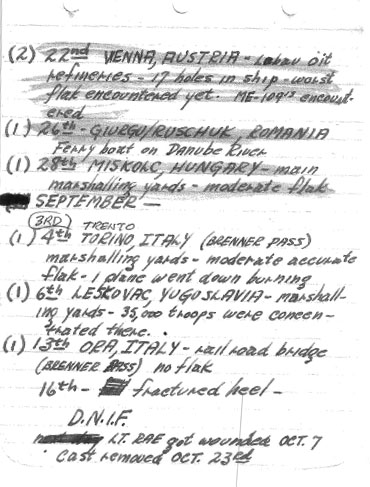 (2) 22nd VENNA, AUSTRIA - Lobau oil
refineries - 17 holes in ship - worst
flak encountered yet. ME-109's encount-
ered
(1) 26th - GIURGO/RUSCHUK, ROMANIA
Ferry boat on Danube River
(1) 28th - MISKOLC, HUNGARY - main
marshalling yards - moderate flak
SEPTEMBER -
3RD TRENTO
(1) 4th TORINO, ITALY (BRENNER PASS)
marshalling yards - moderate accurate
flak - 1 plane went down burning
(1) 6th LESKOVAC, YUGOSLAVIA - marshall-
ing yards - 35,000 troops were concen-
trated there.
(1) 13th ORA, ITALY - rail road bridge
(BRENNER PASS) no flak
16th - fractured heel -
D.N.I.F.
next day LT. RAE got wounded OCT. 7
Cast removed OCT. 23rd